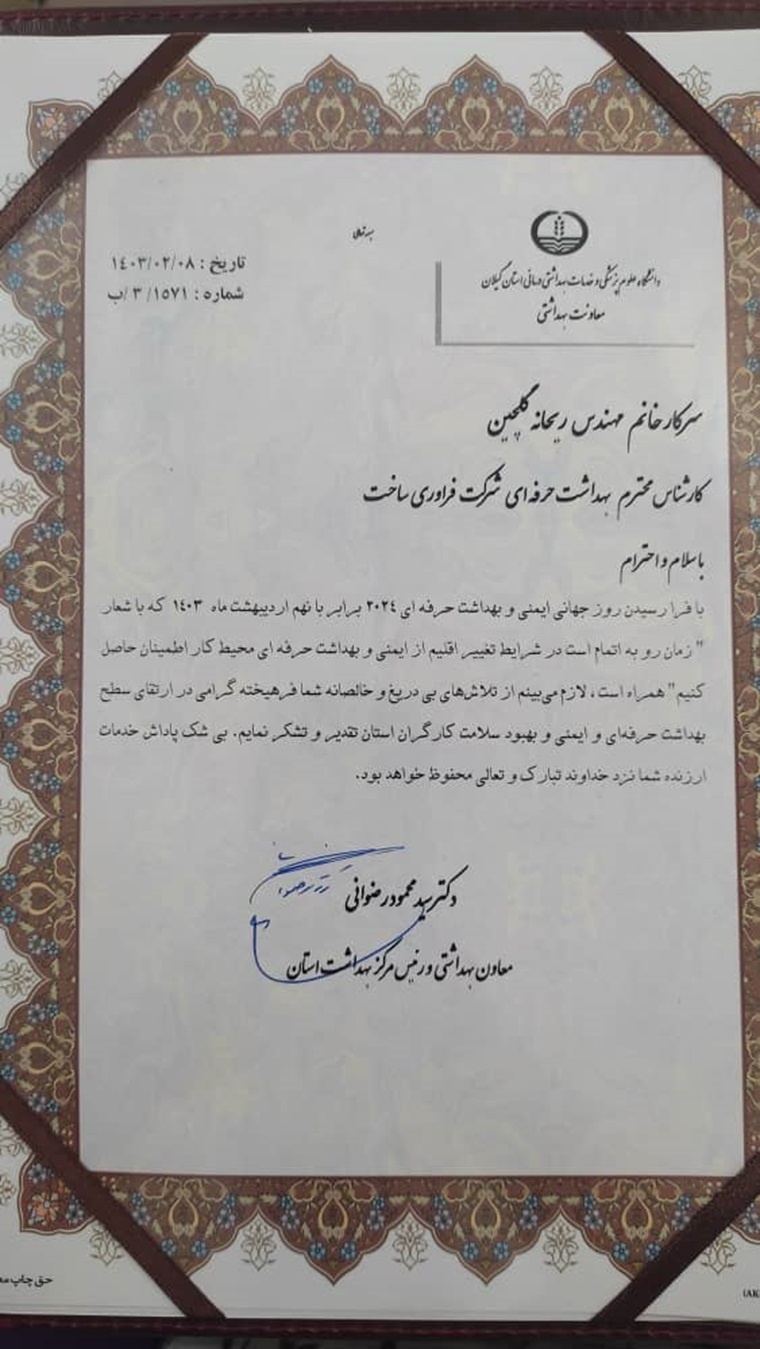 بسمه تعالی
دانشگاه علوم پزشکی و خدمات بهداشتی درمانی استان گیلان
معاونت بهداشتی
تاریخ : ۱٤۰۳/۰۲/۰۸
شماره : ۱٥۷۱/ ۳ /ب
سرکار خانم مهندس ریحانه گلچین
کارشناس محترم بهداشت حرفه ای شرکت فراوری ساخت
با سلام و احترام
با فرا رسیدن روز جهانی ایمنی و بهداشت حرفه ای ۲۰۲٤ برابر با نهم اردیبهشت ماه ۱٤۰۳ که با شعار
" زمان رو به اتمام است در شرایط تغییر اقلیم از ایمنی و بهداشت حرفه ای محیط کار اطمینان حاصل
کنیم" همراه است، لازم می‌بینم از تلاش‌های بی دریغ و خالصانه شما فرهیخته گرامی در ارتقای سطح
بهداشت حرفه‌ای و ایمنی و بهبود سلامت کارگران استان تقدیر و تشکر نمایم. بی شک پاداش خدمات
ارزنده شما نزد خداوند تبارک و تعالی محفوظ خواهد بود.
دکتر سید محمود رضوانی
معاون بهداشتی و رئیس مرکز بهداشت استان
حق چاپ
(AK